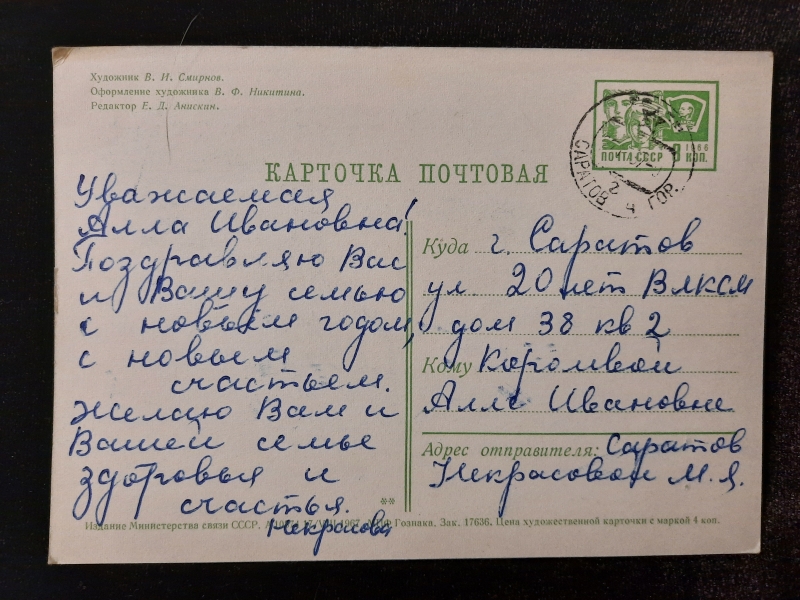 Художник В. И. Смирнов.
Оформление художника В. Ф. Никитина.
Редактор Е. Д. Анискин.
1966
ПОЧТА СССР
КОП.
САРАТОВ
ГОР.
КАРТОЧКА ПОЧТОВАЯ
Уважаемая
Алла Ивановна!
Поздравляю Вас
и Вашу семью
с новым годом,
с новым
счастьем.
Желаю Вам и
Вашей семье
здоровья и
счастья.
Некрасова
Куда г. Саратов
ул. 20 лет Влксм
дом 38 кв 2
Кому
Алле Ивановне
Адрес отправителя: Саратов
Некрасовой М. Я.
Издание Министерства связи СССР. 1967. Гознака, Зак. 17636. Цена художественной карточки с маркой 4 коп.